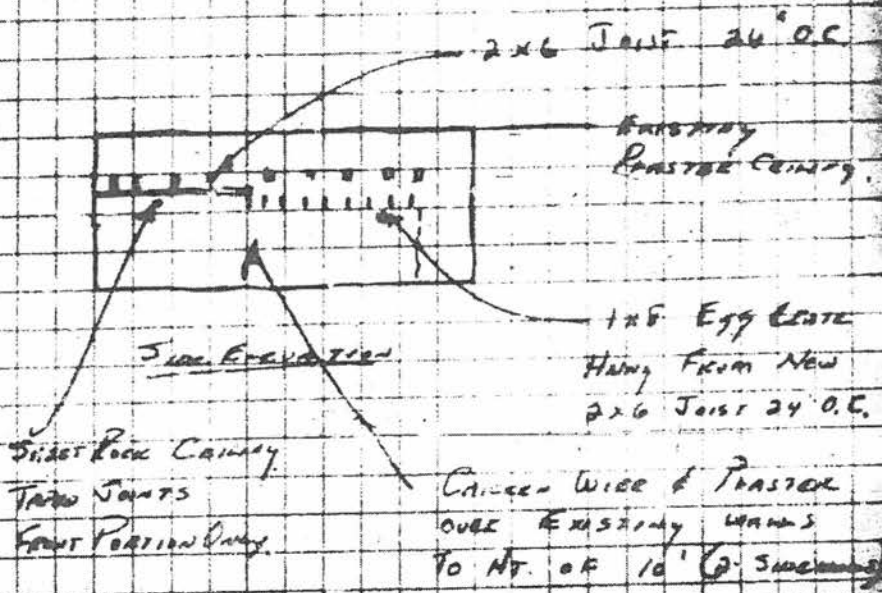 2 x 6 JOIST 24" O.C.
EXISTING
PLASTER CEILING.
1x8 EGG CRATE
HUNG FROM NEW
2x6 JOIST 24 O.C.
SIDE ELEVATION
SHEET ROCK CEILING
TAPED JOINTS
FRONT PORTION ONLY
CHICKEN WIRE & PLASTER
OVER EXISTING WALLS
TO HT. OF 10' (2-SIDEWALLS)